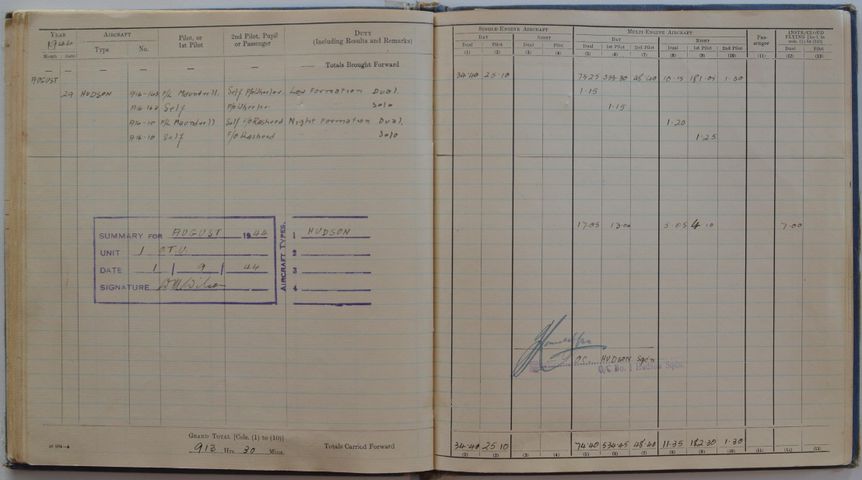 YEAR AIRCRAFT PILOT, OR 1ST PILOT 2ND PILOT, PUPIL OR PASSENGER DUTY (INCLUDING RESULTS AND REMARKS)
1944
MONTH DATE Type No.
— — — — — — — Totals Brought Forward
AUGUST
29 HUDSON A16-143 F/L Self Low Formation Dual
Self Solo
A16-10 F/L Self F/O Rasheed Night Formation Dual
A16-10 Self F/O Rasheed Solo
SUMMARY FOR AUGUST 1944
UNIT 1 OTU
DATE 1 / 9 / 44
SIGNATURE
AIRCRAFT TYPES.
1 HUDSON
2
3
4
GRAND TOTAL [Cols. (1) to (10)]
913 Hrs. 30 Mins.
Totals Carried Forward
SINGLE-ENGINE AIRCRAFT MULTI-ENGINE AIRCRAFT PASSENGER INSTR/CLOUD FLYING
DAY NIGHT DAY NIGHT
DUAL PILOT DUAL PILOT DUAL 1ST PILOT 2ND PILOT DUAL 1ST PILOT 2ND PILOT
(1) (2) (3) (4) (5) (6) (7) (8) (9) (10) (11) (12) (13)
34.40 25.10 48.40 10.15 181.05 1.30
1.15
1.15
1.20
1.25
17.05 4.10 7.00
O.C. HUDSON Sqdn
O/C No. 1 Hudson Sqdn.
34.40 25.10 74.40 534.45 48.40 11.35 182.30 1.30
(1) (2) (3) (4) (5) (6) (7) (8) (9) (10) (11) (12) (13)